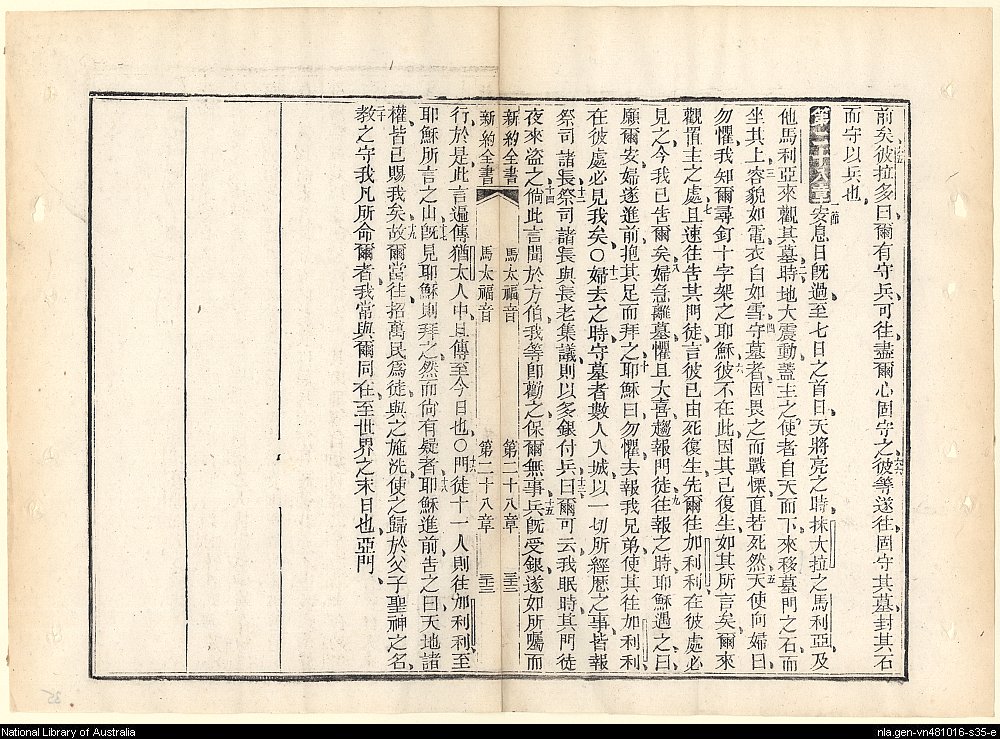 前矣彼拉多曰爾有守兵可往盡爾心固守之彼等遂往固守其墓封其石
而守以兵也
第二十八章 安息日旣過至七日之首日天將亮之時抹大拉之馬利亞及
他馬利亞來觀其墓時地大震動蓋主之使者自天而下來移墓門之石而
坐其上容貌如電衣白如雪守墓者因畏之而戰慄面若死然天使向婦曰
勿懼我知爾尋釘十字架之耶穌彼不在此因其已復生如其所言矣爾來
觀置主之處且速往告其門徒言彼已由死復生先爾往加利利在彼處必
見之今我已告爾矣婦急離墓懼且大喜趨報門徒往報之時耶穌遇之曰
願爾安婦遂進前抱其足而拜之耶穌曰勿懼去報我兄弟使其往加利利
在彼處必見我矣〇婦去之時守墓者數人入城以一切所經歷之事皆報
祭司諸長祭司諸長與長老集議則以多銀付兵曰爾可云我眠時其門徒
夜來盜之倘此言聞於方伯我等卽勸之保爾無事兵旣受銀遂如所囑而
新約全書 馬太福音 第二十八章 三十三
新約全書 馬太福音 第二十八章 三十三
行於是此言遍傳猶太人中且傳至今日也〇門徒十一人則往加利利至
耶穌所言之山旣見耶穌則拜之然而尙有疑者耶穌進前告之曰天地諸
權皆已賜我矣故爾當往招萬民爲徒與之施洗使之歸於父子聖神之名
教之守我凡所命爾者我常與爾同在至世界之末日也亞門
National Library of Australia
nla.gen-vn481016-s35-e